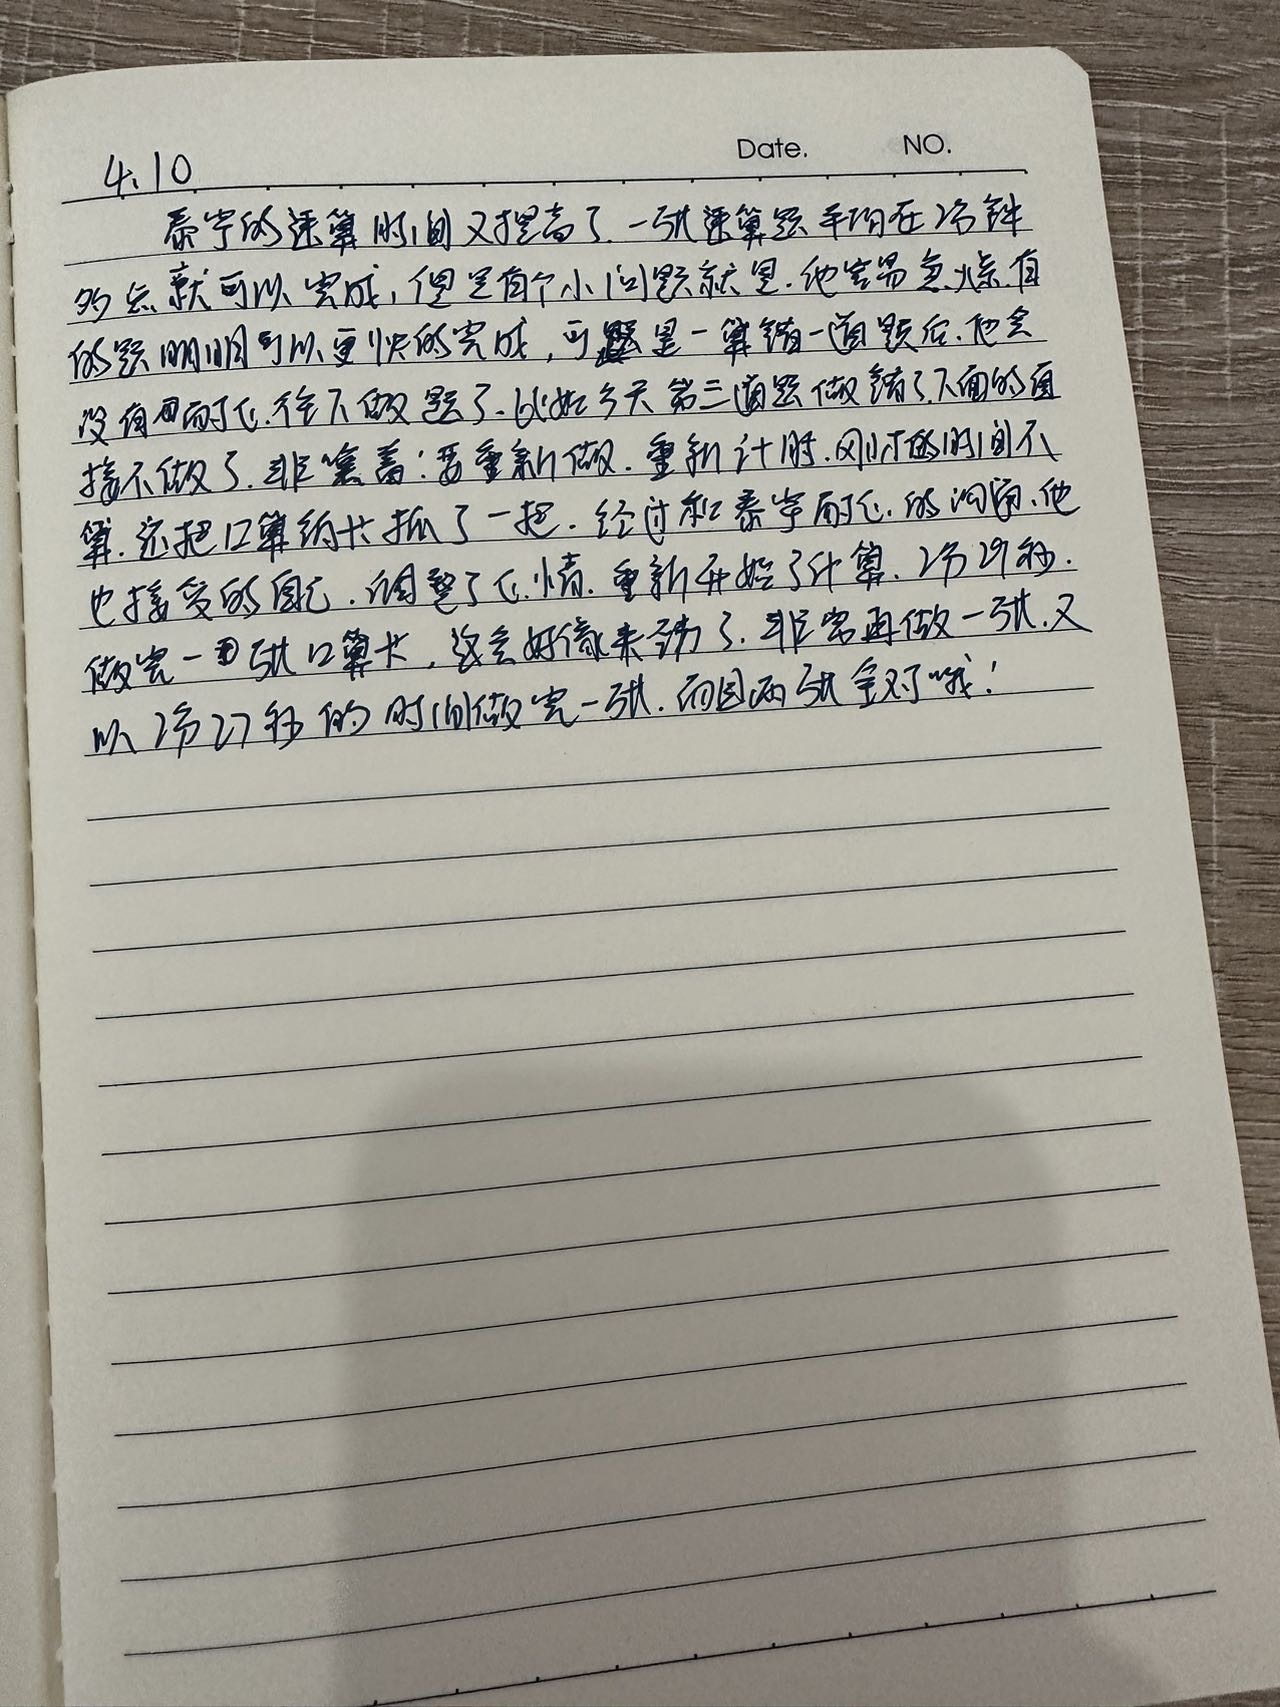 Date. NO.
4.10
泰宇的速算时间又提高了.一张速算题平均在2分钟
多点就可以完成,但是有个小问题就是.他容易急燥.有
的题明明可以更快的完成,可是一算错一道题后.他会
没有耐心.往下做题了.比如今天第三道题做错了.下面的直
接不做了.非嚷着:要重新做.重新计时.刚才的时间不
算.还把口算纳卡抓了一把.经过和泰宇耐心的沟通.他
也接受的自己.调整了心情.重新开始了计算.2分29秒.
做完一张口算卡,这会好像来劲了.非常再做一张.又
以2分27秒的时间做完一张.而且两张全对哦!